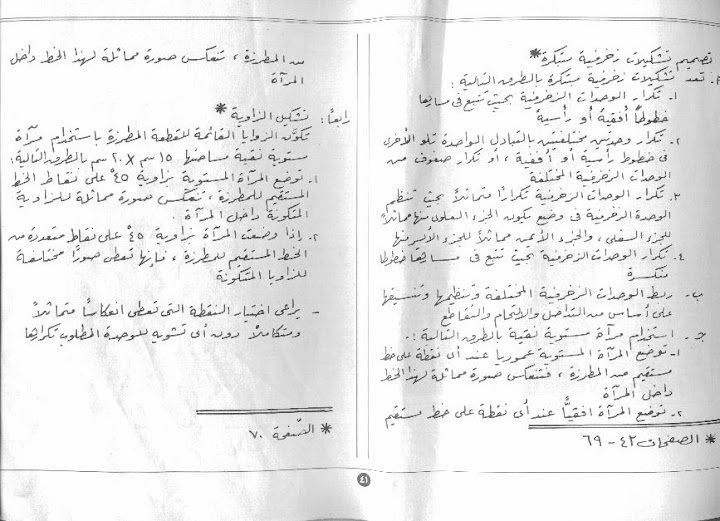 تصميم تشكيلات زخرفية مبتكرة *
أ. تعد تشكيلات زخرفية مبتكرة بالطرق التالية :
١. تكرار الوحدات الزخرفية بحيث تتبع في مسارها
خطوطاً أفقية أو رأسية
٢. تكرار وحدتين مختلفتين بالتبادل الواحدة تلو الأخرى
في خطوط رأسية أو أفقية ، أو تكرار صفوف من
الوحدات الزخرفية المختلفة
٣. تكرار الوحدات الزخرفية تكراراً متماثلاً بحيث تنظم
الوحدة الزخرفية في وضع يكون الجزء العلوي منها مماثلاً
للجزء السفلي ، والجزء الأيمن مماثلاً للجزء الأيسر منها
٤. تكرار الوحدات الزخرفية بحيث تتبع في مسارها خطوطاً
منكسرة
ب. ربط الوحدات الزخرفية المختلفة وتنظيمها وتنسيقها
على أساس من التداخل والالتحام والتقاطع
ج. استخدام مرآة مستوية نقية بالطرق التالية :.
١. توضع المرآة المستوية عمودياً عند أى نقطة على خط
مستقيم من المطرزة ، فتنعكس صورة مماثلة لهذا الخط
داخل المرآة
٢. توضع المرآة افقياً عند أى نقطة على خط مستقيم
* الصفحات ٤٢ - ٦٩
من المطرزة ، تنعكس صورة مماثلة لهذا الخط داخل
المرآة
رابعاً : تشكيل الزاوية *
تكون الزوايا القائمة للقطعة المطرزة باستخدام مرآة
مستوية نقية مساحتها ١٥ سم × ٢٠ سم بالطرق التالية :
١. توضع المرآة المستوية بزاوية ٤٥° على نقاط الخط
المستقيم للمطرزة ، تنعكس صورة مماثلة للزاوية
المتكونة داخل المرآة .
٢. إذا وضعت المرآة بزاوية ٤٥° على نقاط متعددة من
الخط المستقيم للمطرزة ، فإنها تعطى صوراً مختلفة
للزوايا المتكونة
- يراعى اختيار النقطة التى تعطى انعكاساً متماثلاً
ومتكاملاً دون أى تشويه للوحدة المطلوب تكرارها
* الصفحة ٧٠
٤١